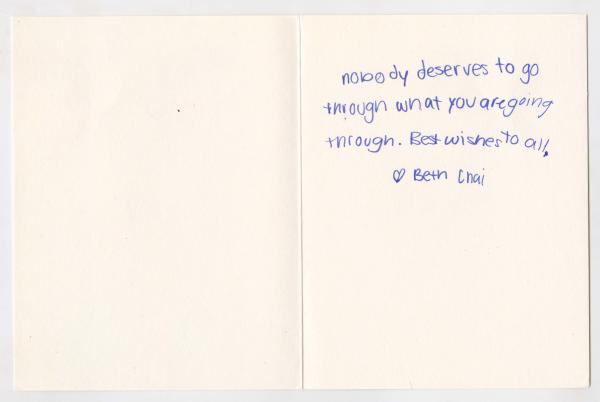 nobody deserves to go
through what you are going
through. Best wishes to all,
♡ Beth Chai